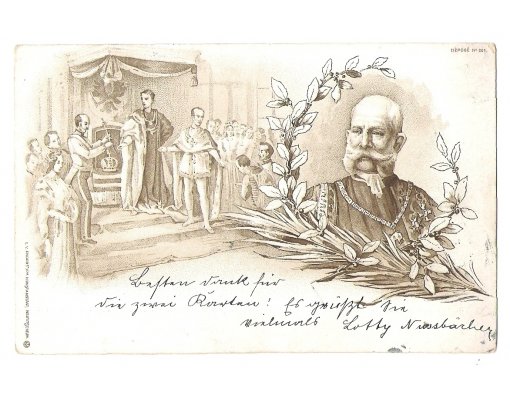 DÉPOSÉ Nº 001.
Besten Dank für
die zwei Karten! Es grüßt Sie
vielmals Lotty Nussbächer